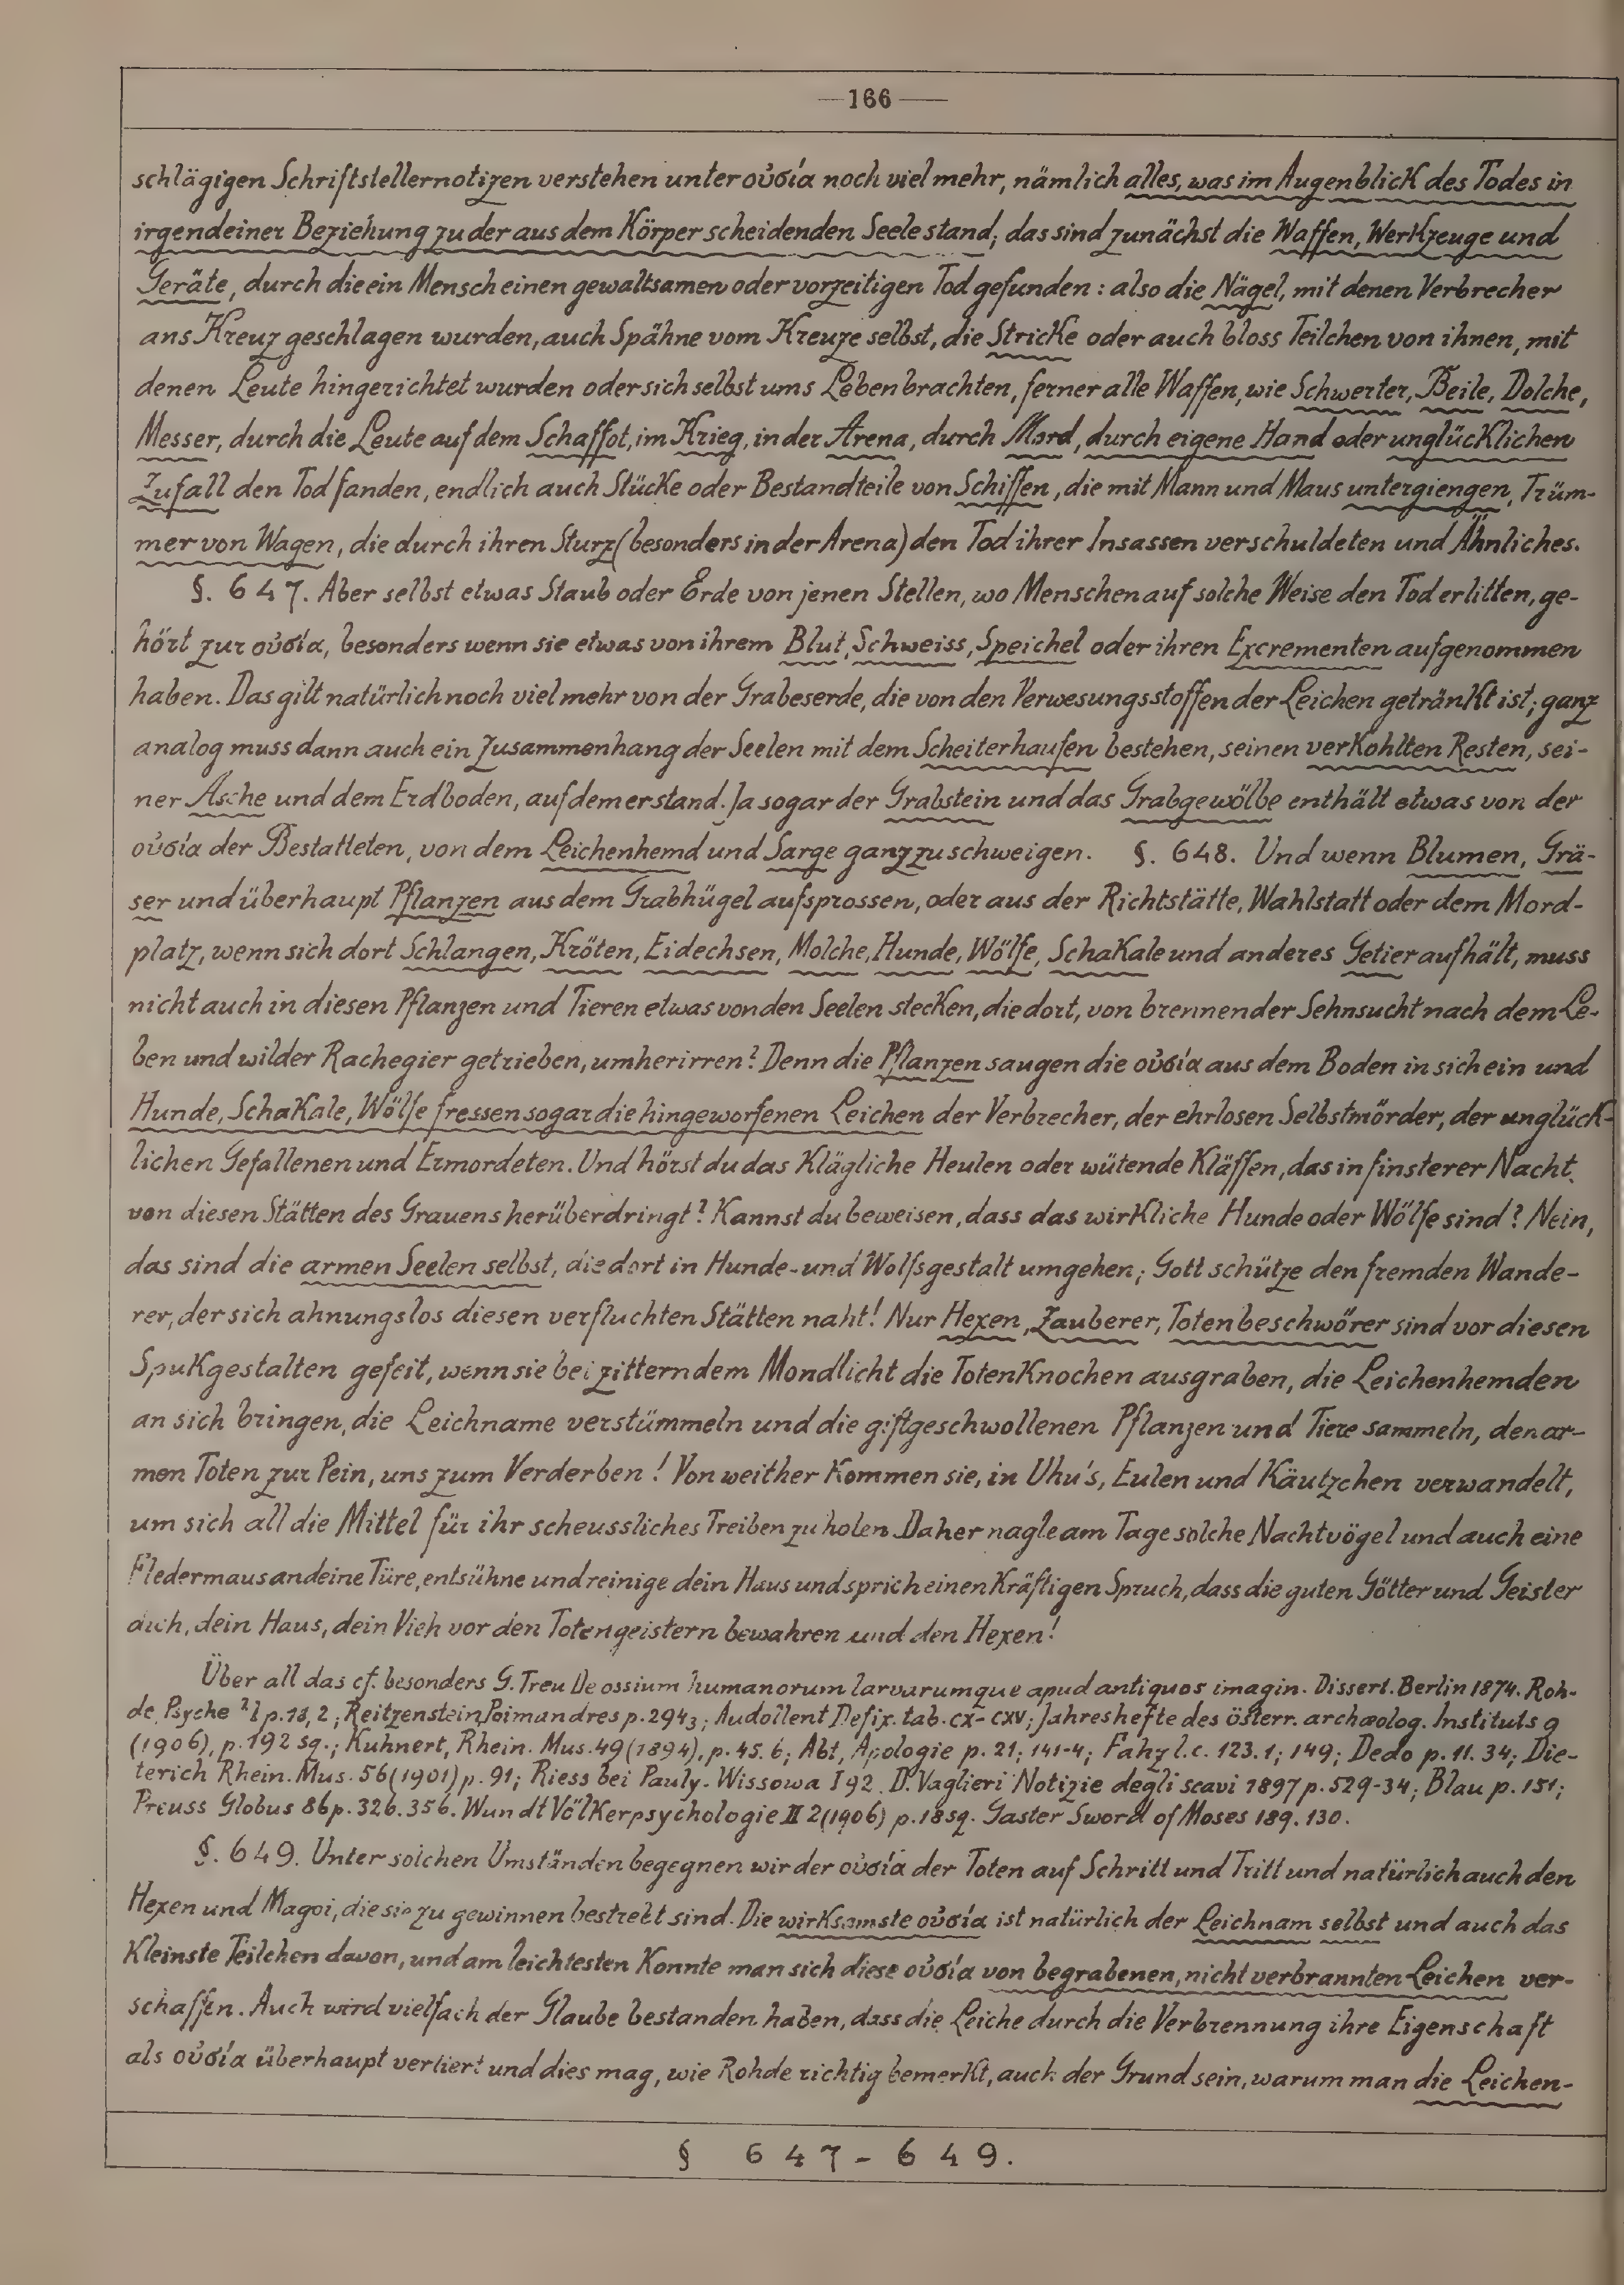 —166—
schlägigen Schriftstellernotizen verstehen unter οὐσία noch viel mehr, nämlich alles, was im Augenblick des Todes in
irgendeiner Beziehung zu der aus dem Körper scheidenden Seele stand; das sind zunächst die Waffen, Werkzeuge und
Geräte, durch die ein Mensch einen gewaltsamen oder vorzeitigen Tod gefunden: also die Nägel, mit denen Verbrecher
ans Kreuz geschlagen wurden, auch Spähne vom Kreuze selbst, die Stricke oder auch bloss Teilchen von ihnen, mit
denen Leute hingerichtet wurden oder sich selbst ums Leben brachten, ferner alle Waffen, wie Schwerter, Beile, Dolche,
Messer, durch die Leute auf dem Schaffot, im Krieg, in der Arena, durch Mord, durch eigene Hand oder unglücklichen
Zufall den Tod fanden, endlich auch Stücke oder Bestandteile von Schiffen, die mit Mann und Maus untergiengen, Trüm-
mer von Wagen, die durch ihren Sturz (besonders in der Arena) den Tod ihrer Insassen verschuldeten und Ähnliches.
§. 647. Aber selbst etwas Staub oder Erde von jenen Stellen, wo Menschen auf solche Weise den Tod erlitten, ge-
hört zur οὐσία, besonders wenn sie etwas von ihrem Blut, Schweiss, Speichel oder ihren Excrementen aufgenommen
haben. Das gilt natürlich noch viel mehr von der Grabeserde, die von den Verwesungsstoffen der Leichen getränkt ist; ganz
analog muss dann auch ein Zusammenhang der Seelen mit dem Scheiterhaufen bestehen, seinen verkohlten Resten, sei-
ner Asche und dem Erdboden, auf dem er stand. Ja sogar der Grabstein und das Grabgewölbe enthält etwas von der
οὐσία der Bestatteten, von dem Leichenhemd und Sarge ganz zu schweigen. §. 648. Und wenn Blumen, Grä-
ser und überhaupt Pflanzen aus dem Grabhügel aufsprossen, oder aus der Richtstätte, Wahlstatt oder dem Mord-
platz, wenn sich dort Schlangen, Kröten, Eidechsen, Molche, Hunde, Wölfe, Schakale und anderes Getier aufhält, muss
nicht auch in diesen Pflanzen und Tieren etwas von den Seelen stecken, die dort, von brennender Sehnsucht nach dem Le-
ben und wilder Rachegier getrieben, umherirren? Denn die Pflanzen saugen die οὐσία aus dem Boden in sich ein und
Hunde, Schakale, Wölfe fressen sogar die hingeworfenen Leichen der Verbrecher, der ehrlosen Selbstmörder, der unglück-
lichen Gefallenen und Ermordeten. Und hörst du das klägliche Heulen oder wütende Kläffen, das in finsterer Nacht
von diesen Stätten des Grauens herüberdringt? Kannst du beweisen, dass das wirkliche Hunde oder Wölfe sind? Nein,
das sind die armen Seelen selbst, die dort in Hunde- und Wolfsgestalt umgehen; Gott schütze den fremden Wande-
rer, der sich ahnungslos diesen verfluchten Stätten naht! Nur Hexen, Zauberer, Totenbeschwörer sind vor diesen
Spukgestalten gefeit, wenn sie bei zitterndem Mondlicht die Totenknochen ausgraben, die Leichenhemden
an sich bringen, die Leichname verstümmeln und die giftgeschwollenen Pflanzen und Tiere sammeln, den ar-
men Toten zur Pein, uns zum Verderben! Von weither kommen sie, in Uhu's, Eulen und Käutzchen verwandelt,
um sich all die Mittel für ihr scheussliches Treiben zu holen. Daher nagle am Tage solche Nachtvögel und auch eine
Fledermaus an deine Türe, entsühne und reinige dein Haus und sprich einen kräftigen Spruch, dass die guten Götter und Geister
dich, dein Haus, dein Vieh vor den Totengeistern bewahren und den Hexen!
Über all das cf. besonders G. Treu De ossium humanorum larvarumque apud antiquos imagin. Dissert. Berlin 1874. Roh-
de Psyche ²I p. 18, 2; Reitzenstein Poimandres p. 294₃; Audollent Defix. tab. CX-CXV; Jahreshefte des österr. archæolog. Instituts 9
(1906), p. 192 sq.; Kuhnert, Rhein. Mus. 49 (1894), p. 45. 6; Abt, Apologie p. 21; 141-4; Fahz l.c. 123. 1; 149; Dedo p. 11. 34; Die-
terich Rhein. Mus. 56 (1901) p. 91; Riess bei Pauly-Wissowa I 92. D. Vaglieri Notizie degli scavi 1897 p. 529-34; Blau p. 151;
Preuss Globus 86 p. 326. 356. Wundt Völkerpsychologie II 2 (1906) p. 18 sq. Gaster Sword of Moses 189. 130.
§. 649. Unter solchen Umständen begegnen wir der οὐσία der Toten auf Schritt und Tritt und natürlich auch den
Hexen und Magoi, die sie zu gewinnen bestrebt sind. Die wirksamste οὐσία ist natürlich der Leichnam selbst und auch das
kleinste Teilchen davon, und am leichtesten konnte man sich diese οὐσία von begrabenen, nicht verbrannten Leichen ver-
schaffen. Auch wird vielfach der Glaube bestanden haben, dass die Leiche durch die Verbrennung ihre Eigenschaft
als οὐσία überhaupt verliert und dies mag, wie Rohde richtig bemerkt, auch der Grund sein, warum man die Leichen-
§ 647-649.